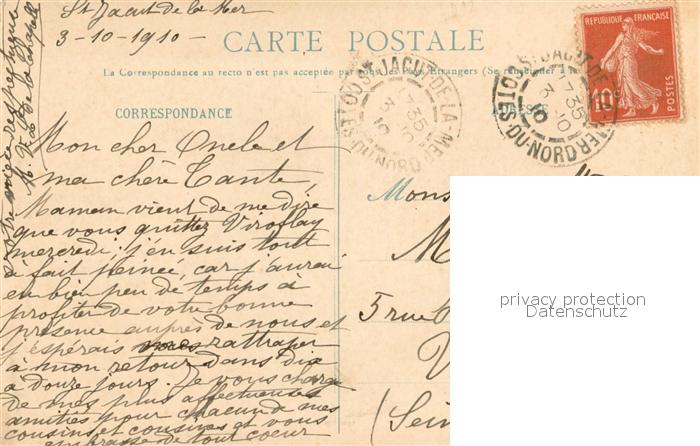 St Jacut de la Mer
3-10-1910-
CARTE POSTALE
La Correspondance au recto n'est pas acceptée par tous les Pays Étrangers (Se renseigner à
CORRESPONDANCE
ADRESSE
REPUBLIQUE FRANÇAISE
10c
POSTES
ST JACUT-DE-LA-MER
7 35
3 10
10
COTES-DU-NORD
ST JACUT-DE-LA-MER
7 35
3 10
10
COTES-DU-NORD
Mon cher Oncle et
ma chère Tante,
Maman vient de me dire
que vous quittez Viroflay
mercredi. j'en suis tout
à fait peinée, car j'aurai
en bien peu de temps à
profiter de votre bonne
présence auprès de nous et
j'espérais rattraper
à mon retour dans dix
à douze jours. Je vous charge
de mes plus affectueuses
amitiés pour chacun de mes
cousins et cousines et vous
embrasse de tout coeur
Votre nièce respectueuse
M. de la Chapelle
Mons
M
5 rue
V
(Sein
privacy protection
Datenschutz